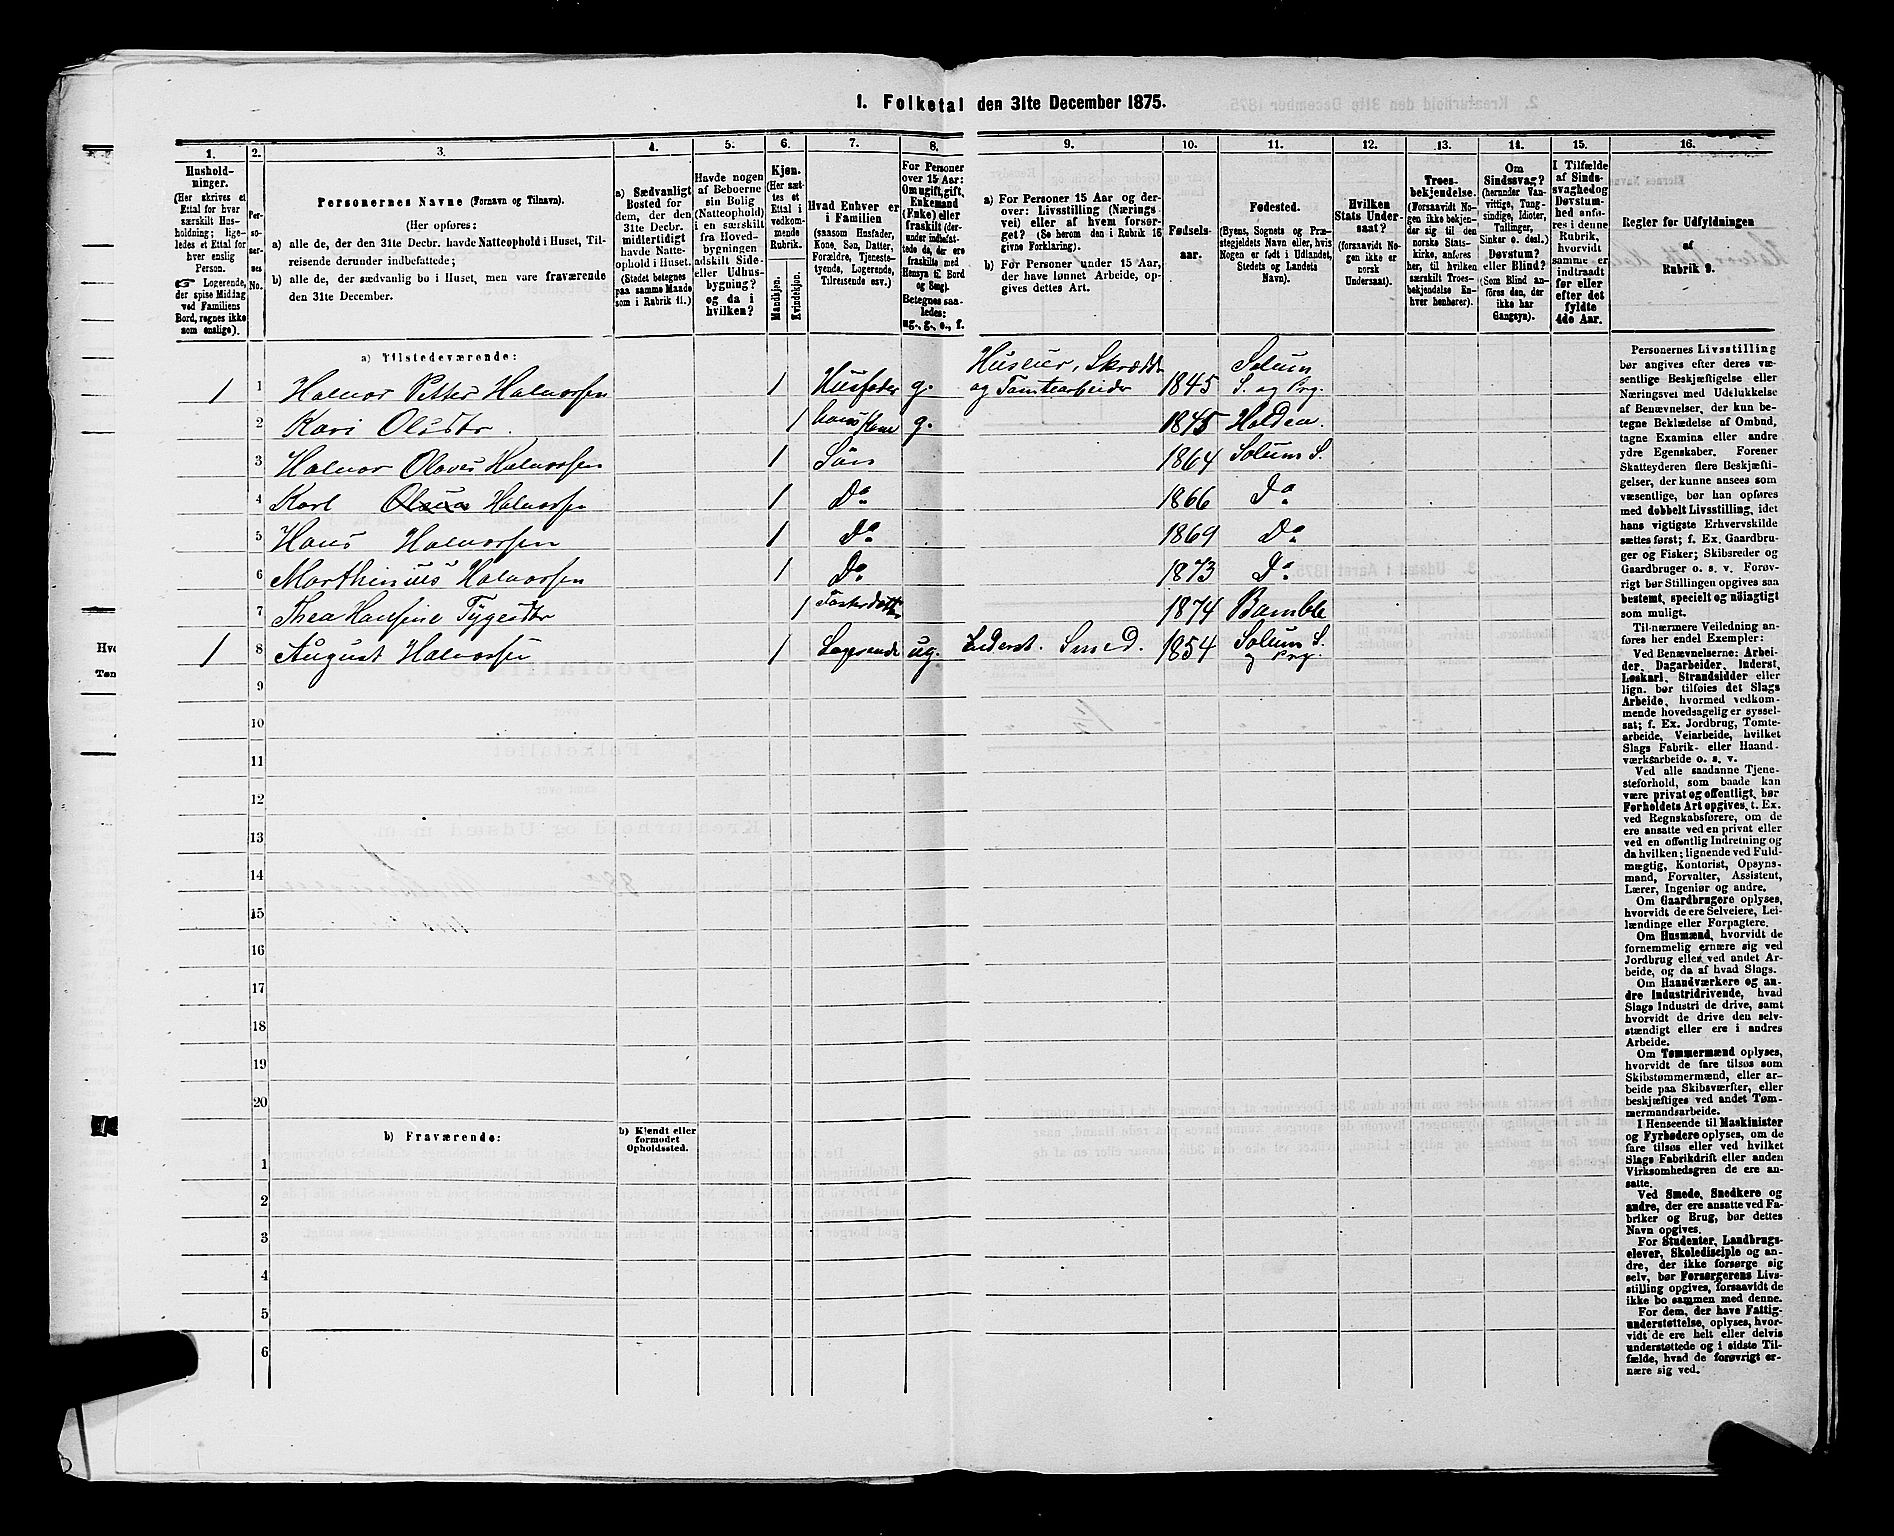 1. Folketal den 31te December 1875.
1. 2. 3. 4. 5. 6. 7. 8. 9. 10. 11. 12. 13. 14. 15. 16.
Hushold-
ninger.
(Her skrives et
Ettal for hver
særskilt Hus-
holdning; lige-
ledes et Ettal for
hver enslig
Person.
☛ Logerende,
der spise Middag
ved Familiens
Bord, regnes ikke
som enslige).
Per-
so-
ner-
nes
No.
Personernes Navne (Fornavn og Tilnavn).
(Her opføres:
a) alle de, der den 31te Decbr. havde Natteophold i Huset, Til-
reisende derunder indbefattede;
b) alle de, der sædvanlig bo i Huset, men vare fraværende
den 31te December.
a) Sædvanligt
Bosted for
dem, der den
31te Decbr.
midlertidigt
havde Natte-
ophold i Huset.
(Stedet betegnes
paa samme Maade
som i Rubrik 11.)
Havde nogen
af Beboerne
sin Bolig
(Natteophold)
i en særskilt
fra Hoved-
bygningen
adskilt Side-
eller Udhus-
bygning?
og da i
hvilken?
Kjøn.
(Her sæt-
tes et
Ettal i
vedkom-
mende
Rubrik.
Mandkjøn.
Kvindekjøn.
Hvad Enhver er
i Familien
(saasom Husfader,
Kone, Søn, Datter,
Forældre, Tjeneste-
tyende, Logerende,
Tilreisende osv.)
For Personer
over 15 Aar:
Om ugift, gift,
Enkemand
(Enke) eller
fraskilt (der-
under indbefat-
tede de, der ere
fraskilte med
Hensyn til Bord
og Seng).
Betegnes saa-
ledes:
ug., g., e., f.
a) For Personer 15 Aar og der-
over: Livsstilling (Nærings-
vei) eller af hvem forsør-
get? (Se herom den i Rubrik 16
givne Forklaring).
b) For Personer under 15 Aar,
der have lønnet Arbeide, op-
gives dettes Art.
Fødsels-
aar.
Fødested.
(Byens, Sognets og Præ-
stegjeldets Navn eller, hvis
Nogen er født i Udlandet,
Stedets og Landets
Navn).
Hvilken
Stats Under-
saat?
(forsaavidt No-
gen ikke er
norsk
Undersaat).
Troes-
bekjendelse.
(Forsaavidt No-
gen ikke bekjen-
der sig til den
norske Stats-
kirke, anføres
her, til hvilken
særskilt Troes-
bekjendelse En-
hver henhører).
Om
Sindssvag?
(herunder Van-
vittige, Tung-
sindige, Idioter,
Tallinger,
Sinker o. desl.)
Døvstum?
eller Blind?
(Som Blind an-
føres den, der
ikke har
Gangsyn).
I Tilfælde
af Sinds-
svaghed og
Døvstum-
hed anfø-
res i denne
Rubrik,
hvorvidt
samme er
indtraadt
før eller
efter det
fyldte
4de Aar.
Regler for Udfyldningen
af
Rubrik 9.
a) Tilstedeværende:
1 1 Halvor Petter Halvorsen 1 Husfader g. Huseier, Skrædder og Tomtearbeider 1845 Solum S. og Prg.
2 Kari Olsdtr. 1 hans Kone g. 1845 Holden.
3 Halvor Olaves Halvorsen 1 Søn 1864 Solum S.
4 Karl Halvorsen 1 Do 1866 Do
5 Hans Halvorsen 1 Do 1869 Do
6 Marthinius Halvorsen 1 Do 1873 Do
7 Thea Hansine Tygesdtr 1 Fosterdatter 1874 Bamble
1 8 August Halvorsen 1 Logerende ug. Inderst. Smed. 1854 Solum S. og Prg.
9
10
11
12
13
14
15
16
17
18
19
20
b) Fraværende:
b) Kjendt eller
formodet
Opholdssted.
1
2
3
4
5
6
Personernes Livsstilling
bør angives efter deres væ-
sentlige Beskjæftigelse eller
Næringsvei med Udelukkelse
af Benævnelser, der kun be-
tegne Beklædelse af Ombud,
tagne Examina eller andre
ydre Egenskaber. Forener
Skatteyderen flere Beskjæfti-
gelser, der kunne ansees som
væsentlige, bør han opføres
med dobbelt Livsstilling, idet
hans vigtigste Erhvervskilde
sættes først; f. Ex. Gaardbru-
ger og Fisker; Skibsreder og
Gaardbruger o. s. v. Forøv-
rigt bør Stillingen opgives saa
bestemt, specielt og nøiagtigt
som muligt.
Til nærmere Veiledning an-
føres her endel Exempler:
Ved Benævnelserne: Arbei-
der, Dagarbeider, Inderst,
Løskarl, Strandsidder eller
lign. bør tilføies det Slags
Arbeide, hvormed vedkom-
mende hovedsagelig er syssel-
sat; f. Ex. Jordbrug, Tomte-
arbeide, Veiarbeide, hvilket
Slags Fabrik- eller Haand-
værksarbeide o. s. v.
Ved alle saadanne Tjene-
steforhold, som baade kan
være privat og offentligt, bør
Forholdets Art opgives, t. Ex.
ved Regnskabsførere, om de
ere ansatte ved en privat eller
ved en offentlig Indretning og
da hvilken; lignende ved Fuld-
mægtig, Kontorist, Opsyns-
mand, Forvalter, Assistent,
Lærer, Ingeniør og andre.
Om Gaardbrugere oplyses,
hvorvidt de ere Selveiere, Lei-
lændinge eller Forpagtere.
Om Husmænd, hvorvidt de
fornemmelig ernære sig ved
Jordbrug eller ved andet Ar-
beide, og da af hvad Slags.
Om Haandværkere og an-
dre Industridrivende, hvad
Slags Industri de drive, samt
hvorvidt de drive den selv-
stændigt eller ere i andres
Arbeide.
Om Tømmermænd oplyses,
hvorvidt de fare tilsøs som
Skibstømmermænd, eller ar-
beide paa Skibsværfter, eller
beskjæftiges ved andet Tøm-
mermandsarbeide.
I Henseende til Maskinister
og Fyrbødere oplyses, om de
fare tilsøs eller ved hvilket
Slags Fabrikdrift eller anden
Virksomhedsgren de ere an-
satte.
Ved Smede, Snedkere og
andre, der ere ansatte ved Fa-
briker og Brug, bør dettes
Navn opgives.
For Studenter, Landbrugs-
elever, Skoledisciple og an-
dre, der ikke forsørge sig
selv, bør Forsørgerens Livs-
stilling opgives, forsaavidt de
ikke bo sammen med denne.
For dem, der have Fattig-
understøttelse, oplyses, hvor-
vidt de ere helt eller delvis
understøttede og i sidste Til-
fælde, hvad de forøvrigt er-
nære sig ved.